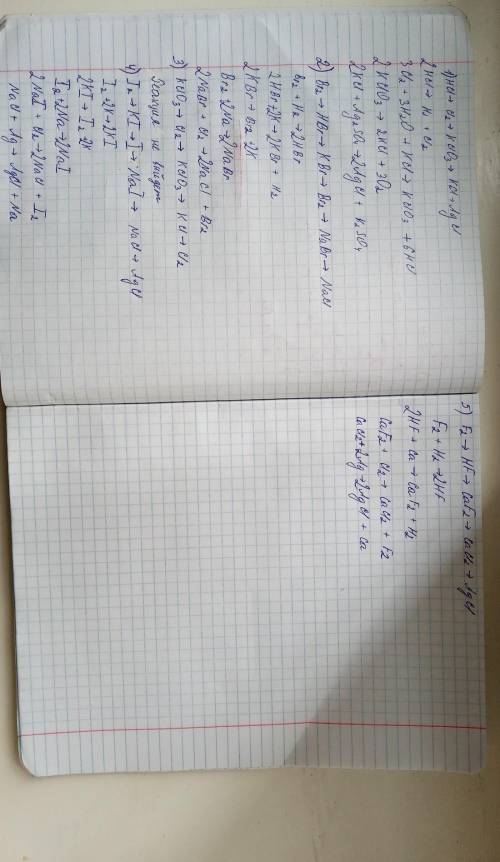 1) HCl → Cl₂ → KClO₃ → KCl → AgCl
2HCl → H₂ + Cl₂
3Cl₂ + 3H₂O + KCl → KClO₃ + 6HCl
2KClO₃ → 2KCl + 3O₂
2KCl + Ag₂SO₄ → 2AgCl + K₂SO₄
2) Br₂ → HBr → KBr → Br₂ → NaBr → NaCl
Br₂ + H₂ → 2HBr
2HBr + 2K → 2KBr + H₂
2KBr → Br₂ + 2K
Br₂ + 2Na → 2NaBr
2NaBr + Cl₂ → 2NaCl + Br₂
3) KClO₃ → Cl₂ → KClO₃ → KCl → Cl₂
Реакция не выйдет
4) I₂ → KI → I₂ → NaI → NaCl → AgCl
I₂ + 2K → 2KI
2KI → I₂ + 2K
I₂ + 2Na → 2NaI
2NaI + Cl₂ → 2NaCl + I₂
NaCl + Ag → AgCl + Na
5) F₂ → HF → CaF₂ → CaCl₂ → AgCl
F₂ + H₂ → 2HF
2HF + Ca → CaF₂ + H₂
CaF₂ + Cl₂ → CaCl₂ + F₂
CaCl₂ + 2Ag → 2AgCl + Ca